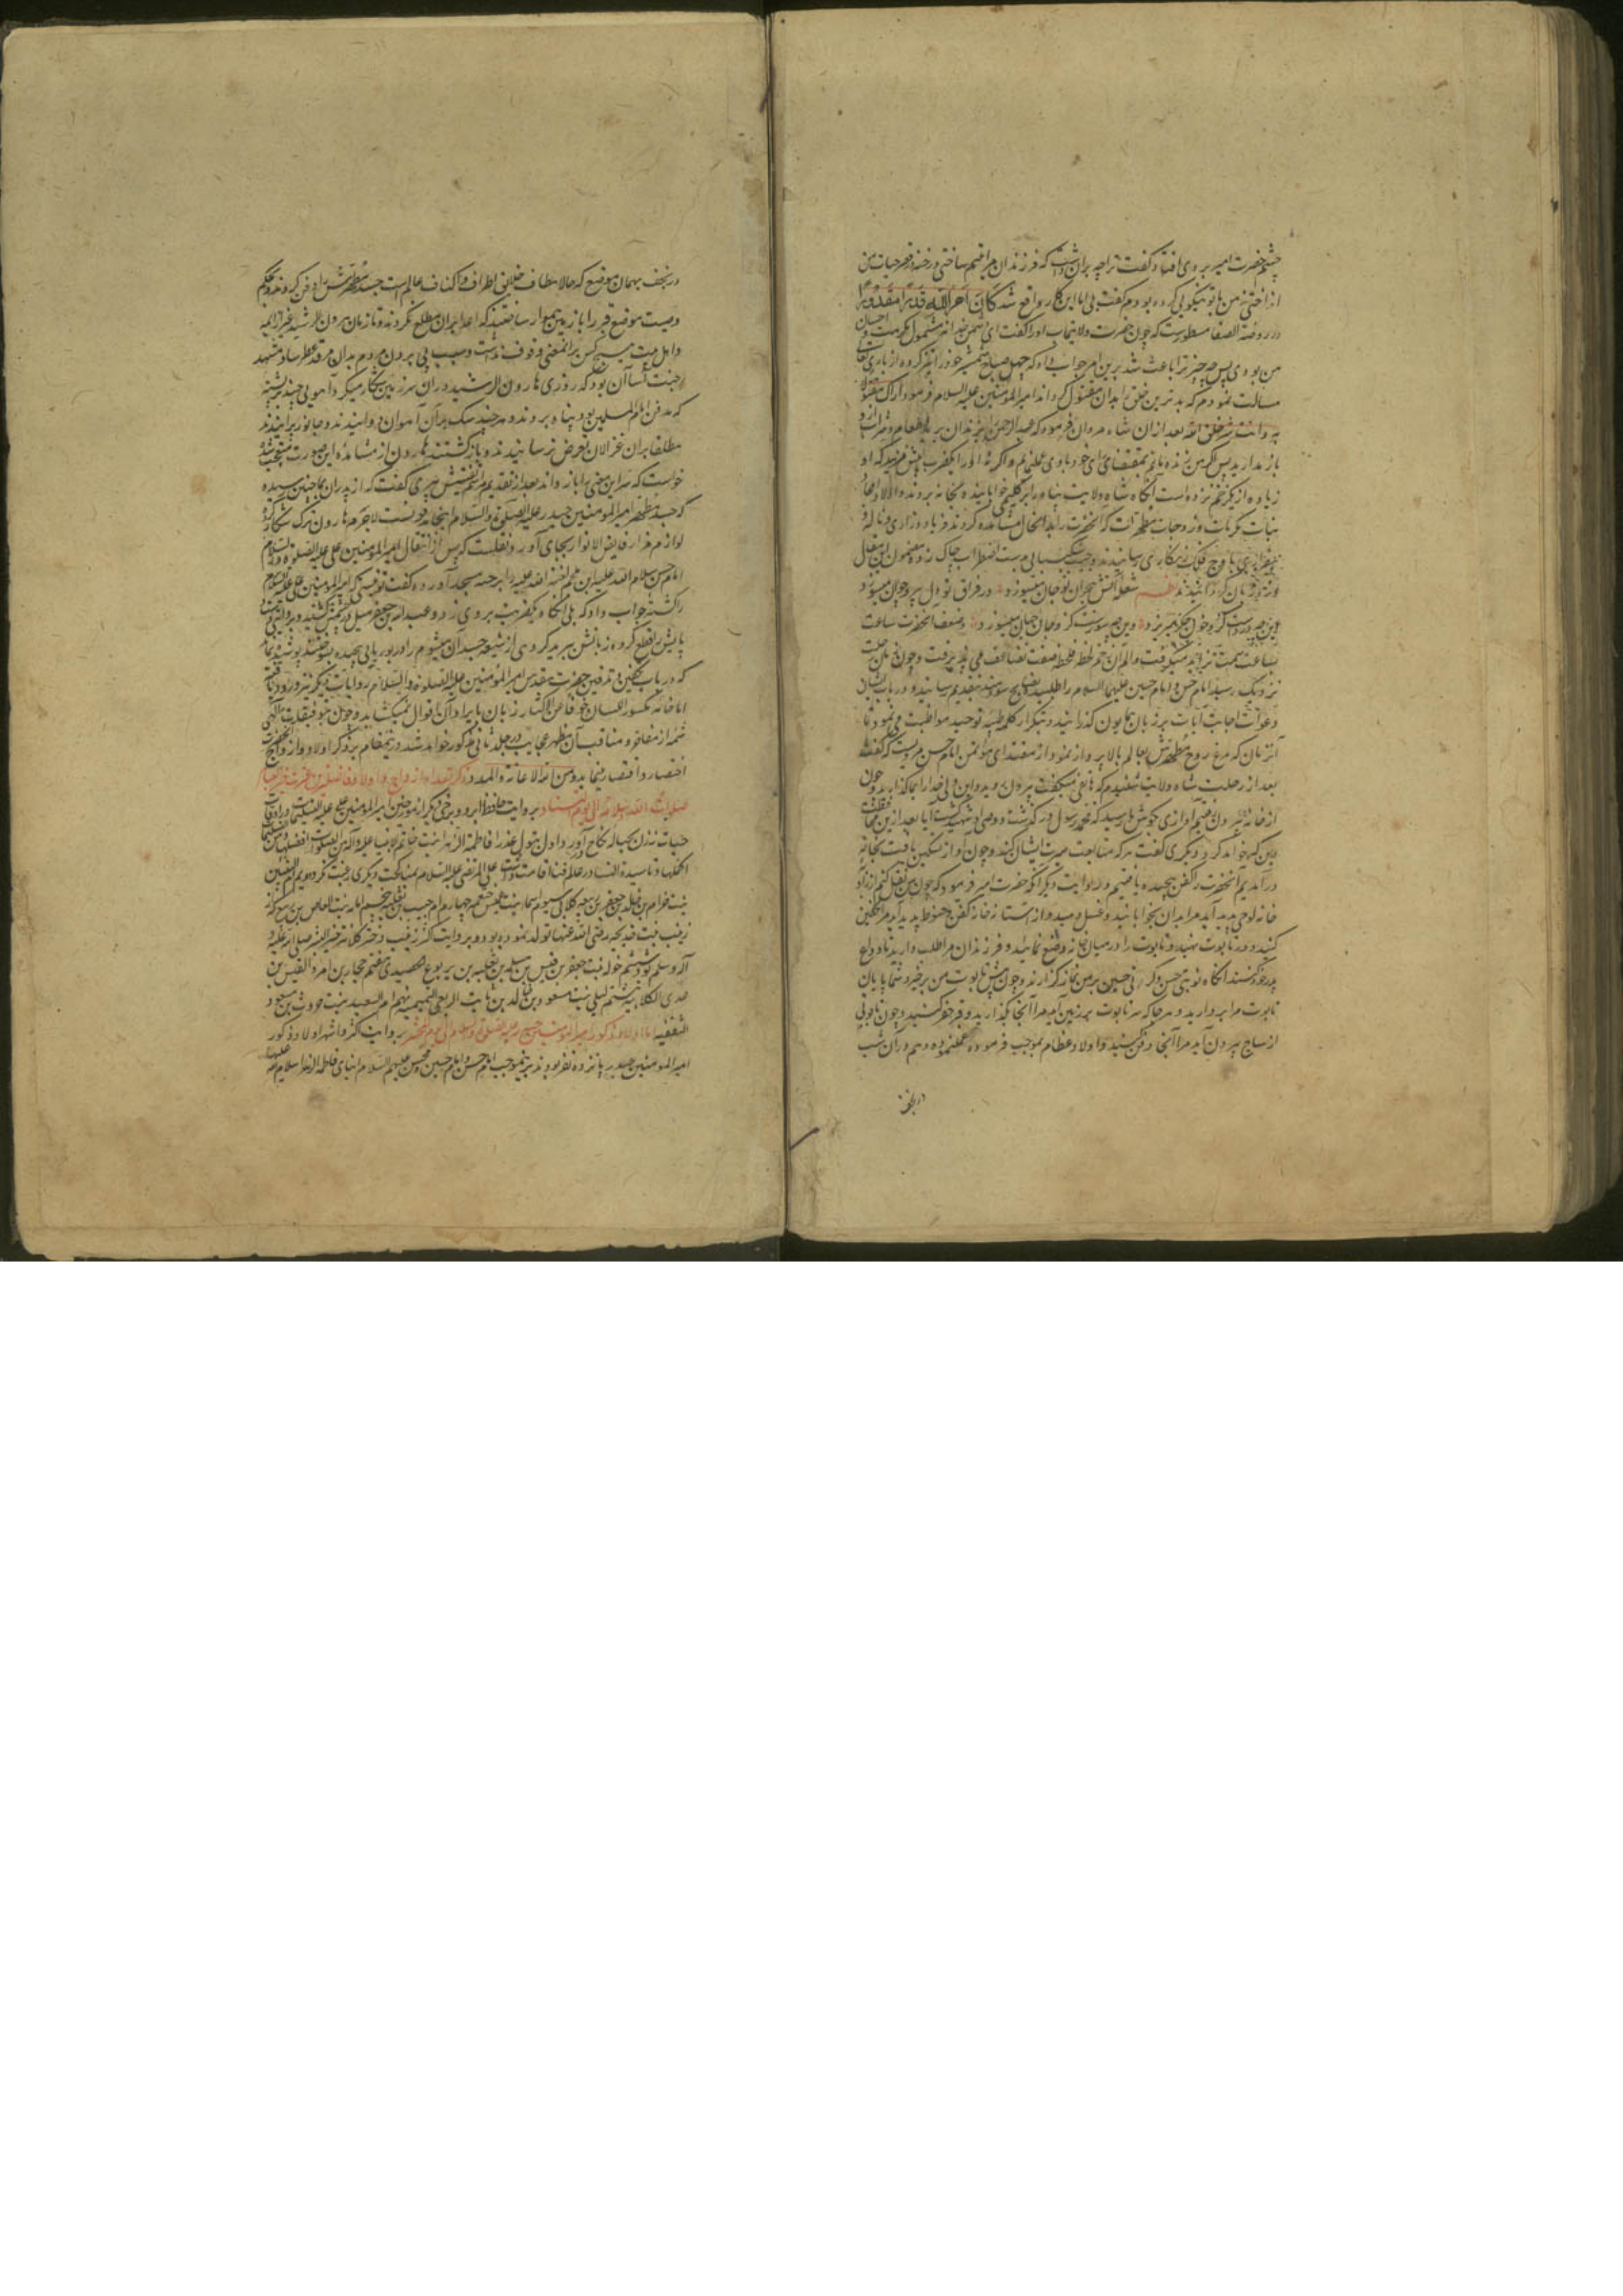 چشم حضرت امیر بر وی افتاد گفت ترا چه بران داشت که فرزندان مرا یتیم ساختی و رخنه در قصر حیات من
انداختی نه من با تو نیکویی کرده بودم گفت بلی اما این کار واقع شد کان امر الله قدرا مقدورا
و در روضة الصفا مسطورست که چون حضرت ولایتمآب او را گفت ای دشمن خدا نه مشمول مکرمت و احسان
من بودی پس چه چیز ترا باعث شد برین امر جواب داد که چهل صباح شمشیر خود را تیز کرده از باری تعالی
مسالت نمودم که بدترین خلق را بدان مقتول گرداند امیر المؤمنین علیه السلام فرمود اراک مقتولا
به وانت شر خلق الله بعد ازان شاه مردان فرمود که عبد الرحمن را بزندان برید و طعام و شراب ازو
باز مدارید پس اگر من زنده مانم بمقتضای رای خود با وی عمل نمایم و اگر نه او را بیک ضرب بیش مزنید که او
زیاده از یک زخم نزده است آنگاه شاه ولایت پناه را بر گلیمی خوابانیده بخانه بردند و اولاد امجاد
بنات مکرمات و زوجات مطهرات که آنحضرت را بد انحال مشاهده کردند فریاد و زاری و ناله و
بیقراری باوج فلک زنگاری رسانیدند و جیب شکیبایی بدست اضطراب چاک زده مضمون این مقال
ورد زبان گردانیدند نظم شعله آتش هجران تو جان میسوزد در فراق تو دل پیر و جوان میسوزد
این چه دردست کزو خون جگر میریزد وین چه سوزست کزو جان جهان میسوزد و ضعف آنحضرت ساعت
بساعت سمت تزاید میگرفت و الم آن زخم لحظه بلحظه صفت تضاعف می پذیرفت و چون زمان رحلت
نزدیک رسید امام حسن و امام حسین علیهما السلام را طلبیده نصایح سودمند بتقدیم رسانید و در باب ایشان
دعوات اجابت آیات بر زبان همایون گذرانید و بتکرار کلمه طیبه توحید مواظبت می نمود تا
آنزمان که مرغ روح مطهرش بعالم بالا پرواز نمود از مقتدای مؤتمن امام حسن مرویست که گفت
بعد از رحلت شاه ولایت شنیدم که هاتفی میگفت بیرون روید و این ولی خدا را بما گذارید چون
از خانه بیرون رفتیم آوازی بگوش ما رسید که محمد رسول درگذشت و وصی او شهید گشت آیا بعد ازین محافظت
دین که خواهد کرد و دیگری گفت هر که متابعت سیرت ایشان کند و چون آواز تسکین یافت بخانه
در آمدیم آنحضرت را کفن پیچیده یافتیم و روایت دیگر آنکه حضرت امیر فرمود که چون من نقل کنم از زاویه
خانه لوحی پدید آید مرا بدان بخوابانید و غسل دهید و از آستانه خانه کفن و حنوط پدید آید مرا تکفین
کنید و در تابوت نهید و تابوت را در میان خانه وضع نمایید و فرزندان مرا طلب دارید تا وداع
پدر خود کنند آنگاه نوبتی حسن و کرتی حسین بر من نماز گذارند و چون پیش تابوت من برخیزد شما پایان
تابوت مرا بردارید و هر جا که سر تابوت بر زمین آید مرا آنجا بگذارید و قبر حفر کنید و چون تابوتی
از ساج بیرون آید مرا آنجا دفن کنید و اولاد عظام بموجب فرموده عمل نموده و هم در آن شب
در نجف
در نجف بهمان موضع که حالا مطاف خلایق اطراف و اکناف عالم است جسد مطهرش را دفن کردند و بحکم
وصیت موضع قبر را با زمین هموار ساختند که اعدا بران مطلع نگردند و تا زمان هرون الرشید غیر از ایمه
و اهل بیت هیچ کس بر آنمعنی وقوف نداشت و سبب پی بردن مردم بدان مرقد عطرسا و مشهد
جنت آسا آن بود که روزی هارون الرشید در آن سرزمین شکار میکرد و آهویی چند بر پشته
که مدفن امام المسلمین بود پناه بردند و هر چند سگ بران آهوان دوانیدند و جانور پرانیدند
مطلقا بران غزالان تعرض نرسانیدند و بازگشتند هارون از مشاهده این صورت متعجب شده
خواست که سر این معنی را باز داند بعد از تقدیم مراسم تفتیش پیری گفت که از پدران بما چنین رسیده
که جسد مطهر امیر المؤمنین حیدر علیه الصلوة والسلام اینجا مدفونست لاجرم هارون ترک شکار کرده
لوازم مزار فایض الانوار بجای آورد و نقلست که پس از انتقال امیر المؤمنین علی علیه الصلوة والسلام
امام حسن سلام الله علیه ابن ملجم لعنة الله علیه را بر در مسجد آورده گفت تویی که امیر المؤمنین علی علیه السلام
را کشتی جواب داد که بلی آنگاه یک ضربت بر وی زد و عبد الله بن جعفر میل در چشمش کشید و بروایتی دست و
پایش را قطع کرده زبانش ببرید گروهی از شیعه جسد آن میشوم را در بوریایی پیچیده بسوختند پوشیده نماند
که در باب تکفین و تدفین حضرت مقدس امیر المؤمنین علیه الصلوة والسلام روایات دیگر نیز ورود یافته
اما خامه مکسور اللسان خوفا من الاکثار زبان بایراد آن اقوال نمیگشاید و چون بتوفیقات الهی
شمه از مفاخر و مناقب آن مظهر عجایب در جلد ثانی مذکور خواهد شد در ینمقام بر ذکر اولاد و ازواج آنحضرت
اختصار و اقتصار مینماید و من الله الاعانة والمدد ذکر تعداد ازواج و اولاد و فضیلت حضرت خیر العباد
صلوات الله و سلامه الی یوم التناد بروایت حافظ ابرو و برخی دیگر از مورخین امیر المؤمنین علی علیه السلام در اوقات
حیات نه زن بحباله نکاح آورد اول بتول عذرا فاطمة الزهرا بنت خاتم الانبیا علیه و آله من الصلوات افضلها و من التسلیمات
اکملها و تا سیدة النسا در عالم فنا اقامت داشت علی المرتضی علیه السلام بمناکحت دیگری رغبت نکرد دویم ام البنین
بنت حرام بن خالد بن جعفر بن ربیعه کلابی سیوم اسما بنت عمیس خثعمیه چهارم ام حبیب تغلبیه پنجم امامه بنت العاص بن ربیع که از
زینب بنت خدیجه رضی الله عنها تولد نموده بود و بروایت اکثر زینب دختر کلانتر خیر البشر صلی الله علیه و
آله و سلم بود ششم خوله بنت جعفر بن قیس بن مسلمه بن ثعلبه بن یربوع هفتم محیاة بنت امرء القیس بن
عدی الکلابیه هشتم لیلی بنت مسعود بن خالد بن ثابت الربعی التمیمیه نهم ام السعید بنت عروة بن مسعود
الثقفیه اما اولاد ذکور امیر المؤمنین حیدر علیه الصلوة والسلام الی یوم المحشر بروایت اکثر و اشهر اولاد ذکور
امیر المومنین حیدر پانزده نفر بودند بدینموجب امام حسن و امام حسین و محسن علیهم السلام ابنای فاطمة الزهرا سلام الله علیها